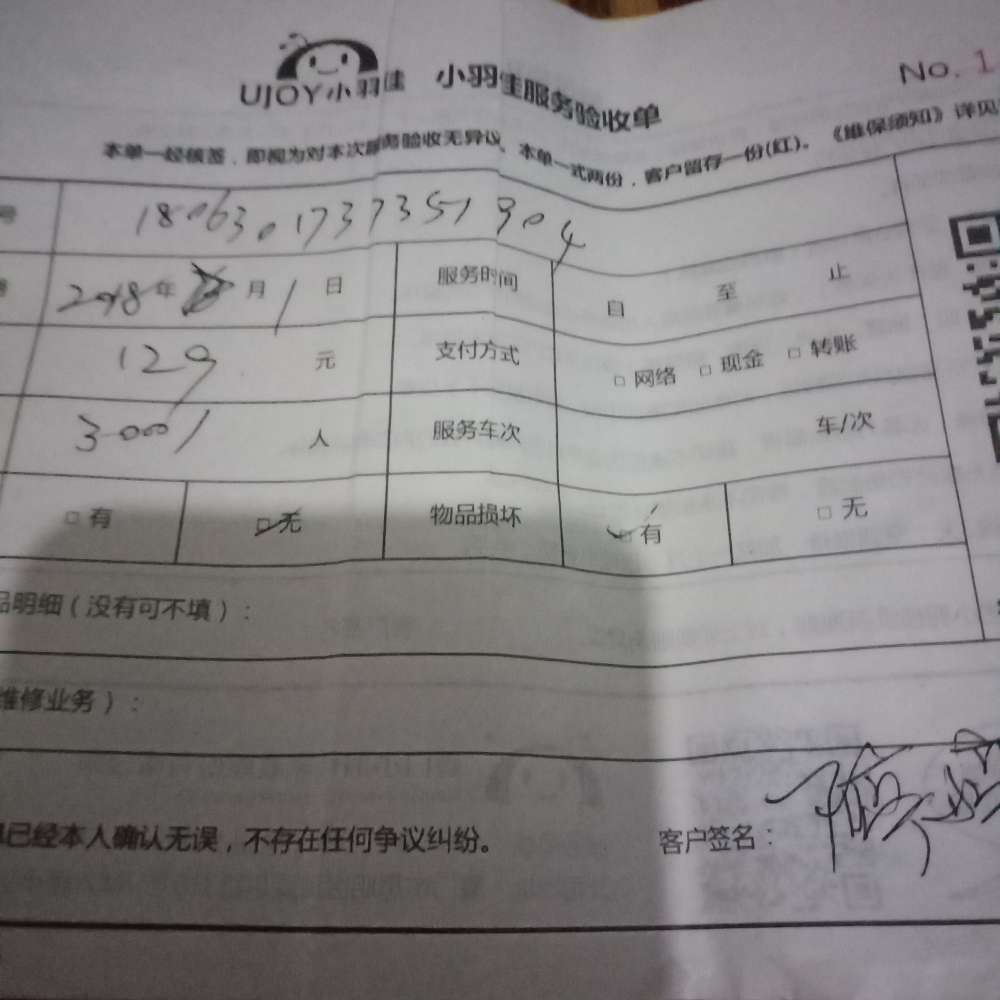 UJOY小羽佳 小羽佳服务验收单
No. 1
本单一经核签，即视为对本次服务验收无异议，本单一式两份，客户留存一份(红)。《维保须知》详见
号 180630173735１904
2018年 月1日 服务时间 自 至 止
129 元 支付方式 □网络 □现金 □转账
30001 人 服务车次 车/次
□有 □无 物品损坏 □有 □无
品明细（没有可不填）：
维修业务）：
已经本人确认无误，不存在任何争议纠纷。 客户签名：